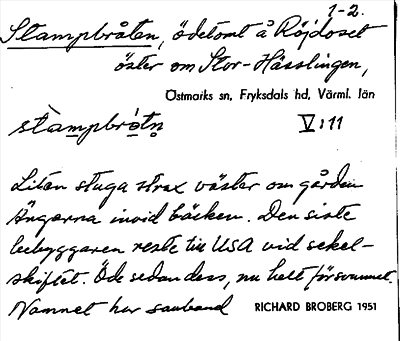 1-2.
Stampbråten, ödetomt å Röjdoset
öster om Stor-Hässlingen,
Östmarks sn, Fryksdals hd, Värml. län
stàmpbrå̀tn̥ V:11
Liten stuga strax väster om gården
Ängarna invid bäcken. Den siste
bebyggaren reste till USA vid sekel-
skiftet. Öde sedan dess, nu helt försvunnet.
Namnet har samband RICHARD BROBERG 1951